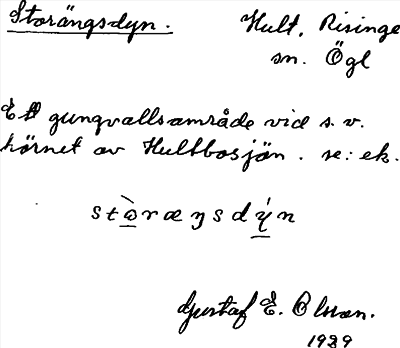 Storängsdyn. Hult, Risinge
sn. Ögl
Ett gungvallsområde vid s.v.
hörnet av Hultbosjön. se: ek.
stòræŋsdýn
Gustaf E. Olsson.
1939